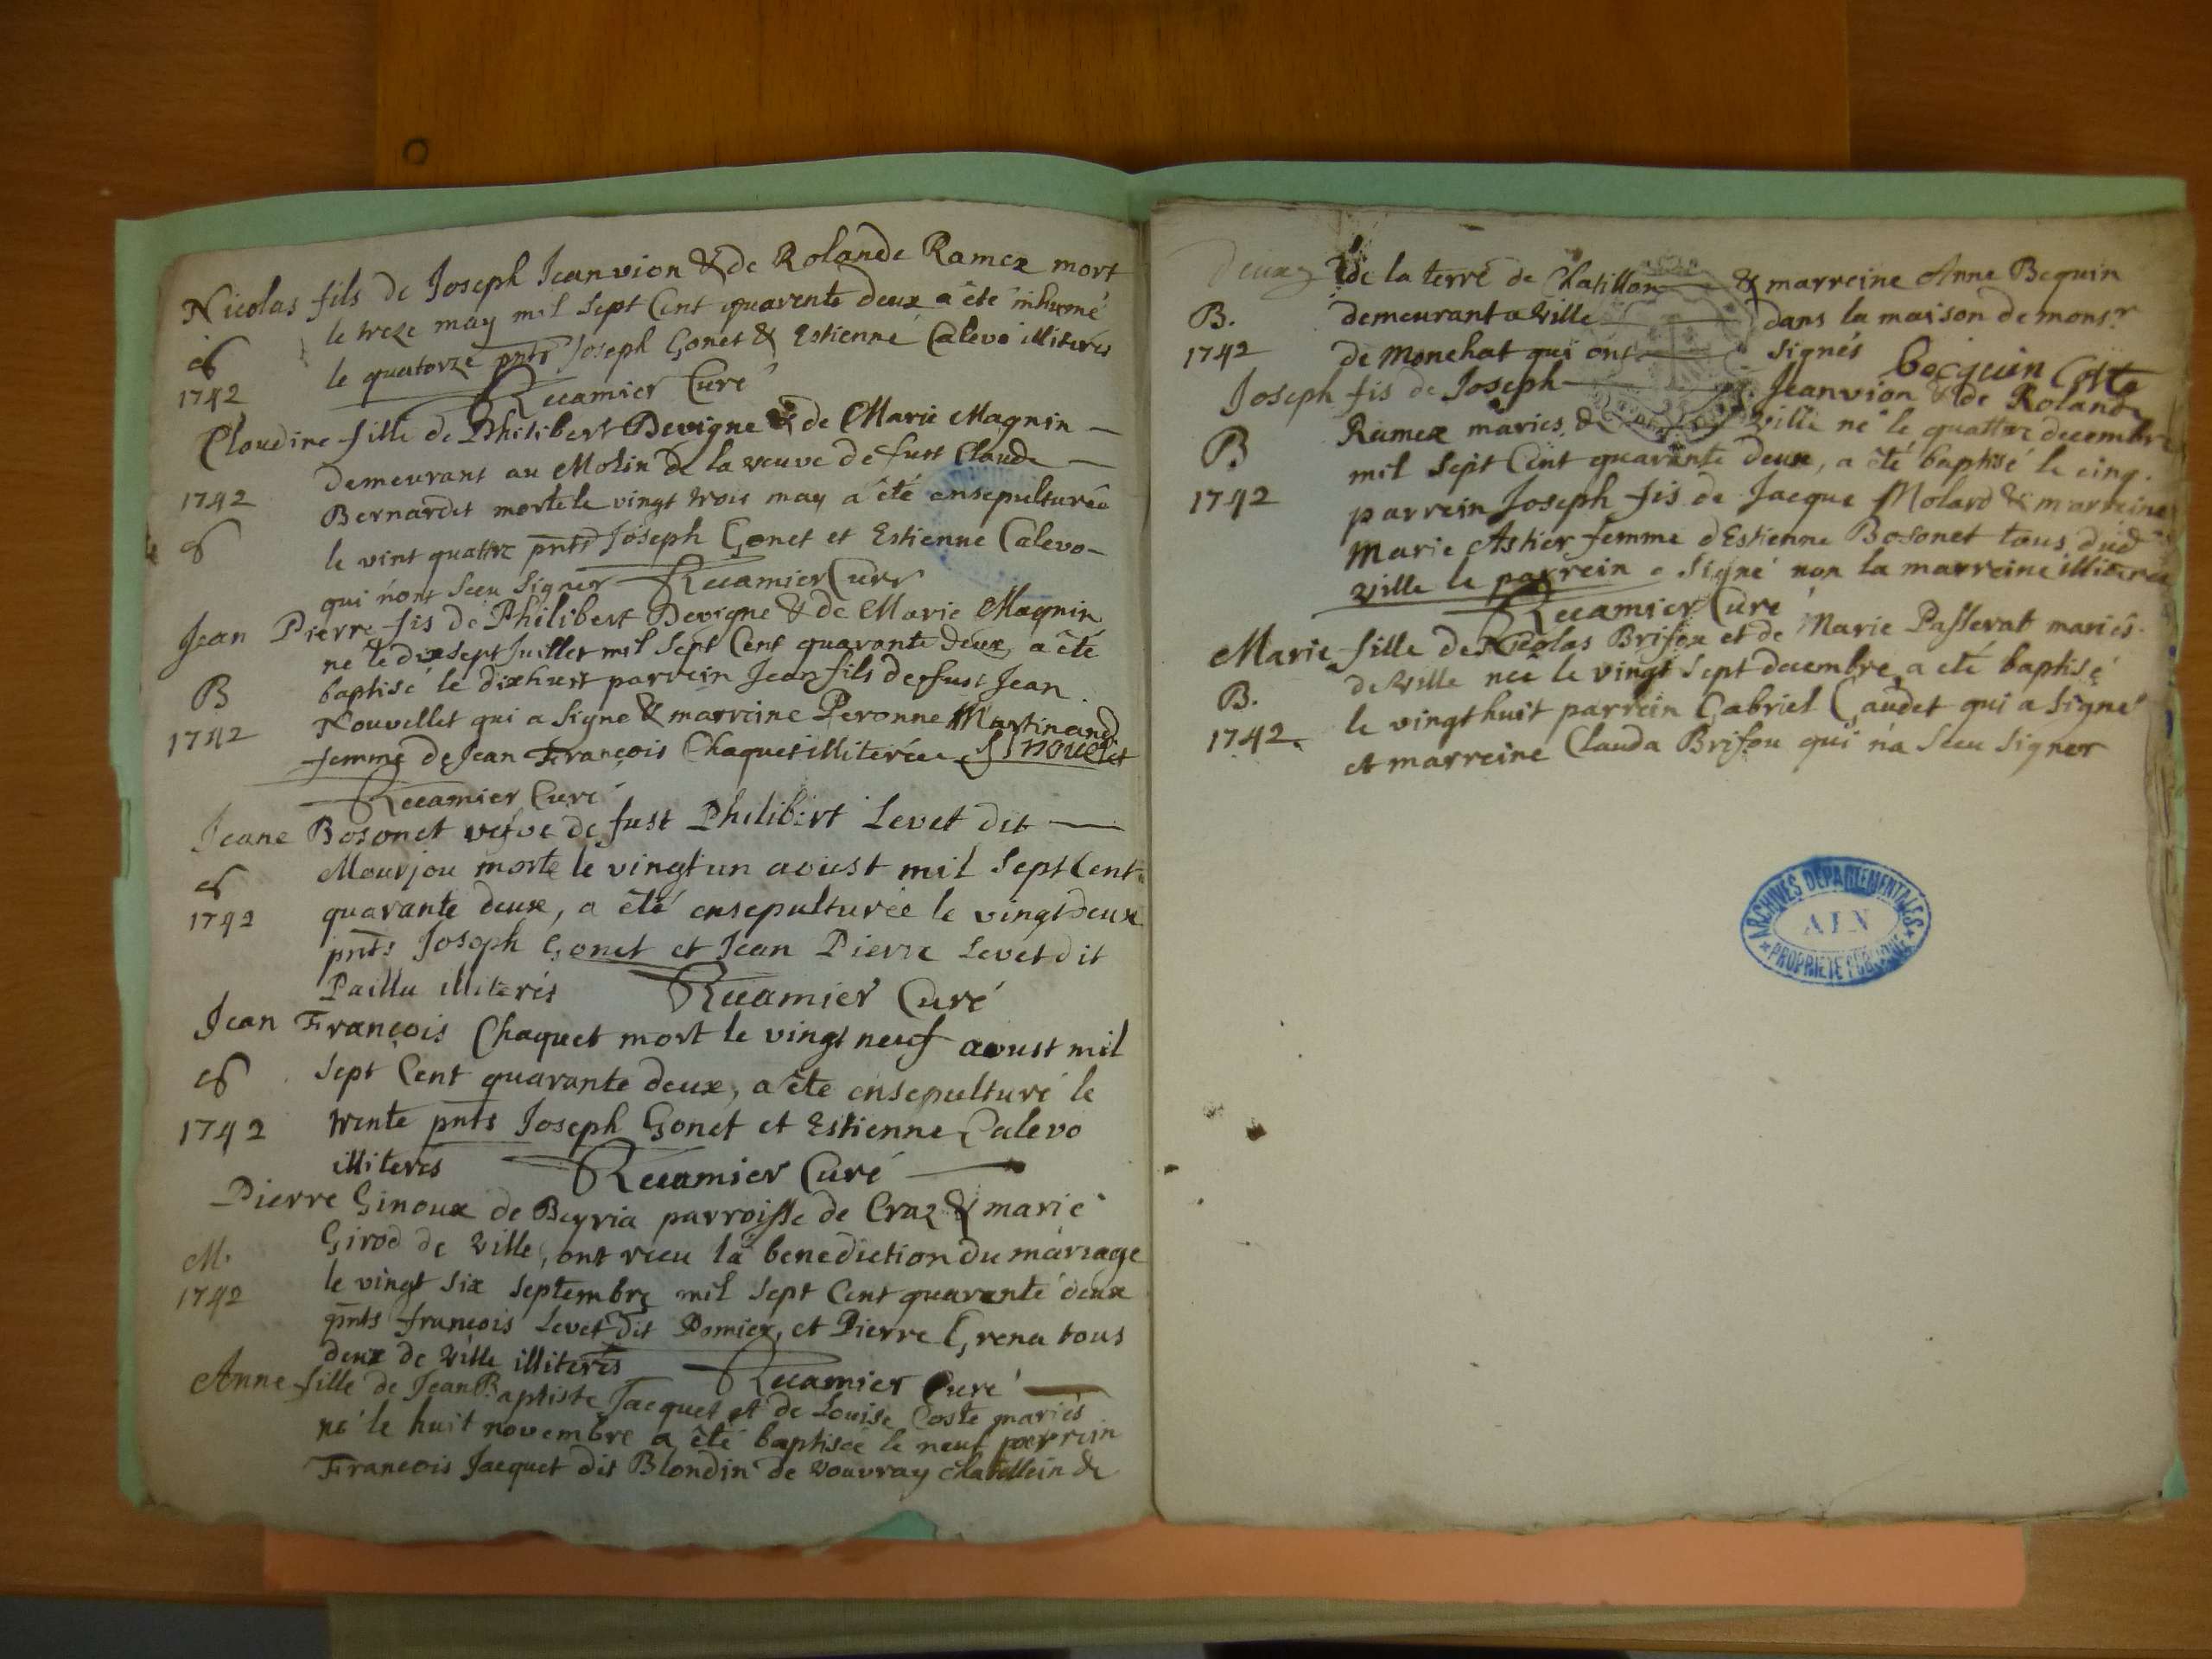 Nicolas fils de Joseph Jeanvion & de Rolande Ramex mort
le treze may mil sept Cent quarente deux a été inhumé
le quatorze pnts Joseph Gonet & Estienne Calevo illiterés
1742
Recamier Curé
Cloudine fille de Philibert Devigne & de Marie Magnin
demeurant au Molin de la veuve de fust Claude
1742
Bernardet morte le vingt trois may a été ensepulturée
le vint quattre pnts Joseph Gonet et Estienne Calevo
qui n'ont sceu signer Recamier Curé
Jean Pierre fis de Philibert Devigne & de Marie Magnin
né le dixsept Juillet mil sept Cent quarante deux, a été
B
baptisé le dixhuit parrein Jean fils de fust Jean
1742
Nouvellet qui a signé & marreine Peronne Martinand
femme de Jean François Chaquet illiterée
Recamier Curé
Jeane Bosonet vefve de fust Philibert Levet dit
Mourjou morte le vingt un aoust mil sept Cent
1742
quarante deux, a été ensepulturée le vingt deux
pnts Joseph Gonet et Jean Pierre Levet dit
Paillu illiterés Recamier Curé
Jean François Chaquet mort le vingt neuf aoust mil
sept Cent quarante deux, a été ensepulturé le
1742
trente pnts Joseph Gonet et Estienne Calevo
illiterés Recamier Curé
Pierre Ginoux de Beyria parroisse de Craz & marie
M.
Girod de ville, ont receu la benediction du mariage
1742
le vingt six septembre mil sept Cent quarante deux
pnts françois Levet dit Pomier, et Pierre Grena tous
deux de ville illiterés Recamier Curé
Anne fille de Jean Baptiste Jacquet et de Louise Coste mariés
né le huit novembre a été baptisée le neuf parrein
François Jacquet dit Blondin de vouvray chatellein de
deux
de la terre de Chatillon & marreine Anne Bequin
B.
demeurant a ville dans la maison de monsr
1742
de Monehat qui ont signés
Joseph fis de Joseph Jeanvion & de Rolande
B
Ramex mariés de ville né le quattre decembre
mil sept Cent quarante deux, a été baptisé le cinq.
1742
parrein Joseph fis de Jacque Molard & marreine
Marie Astier femme d'Estienne Bosonet tous dud
ville le parrein a signé non la marreine illiterée
Recamier Curé
Marie fille de Nicolas Brifou et de Marie Passerat mariés
de ville née le vingt sept decembre a eté baptisé
B.
le vingt huit parrein Gabriel Caudet qui a signé
1742.
et marreine Clauda Brifou qui n'a sceu signer
ARCHIVES DEPARTEMENTALES
AIN
PROPRIETE PUBLIQUE